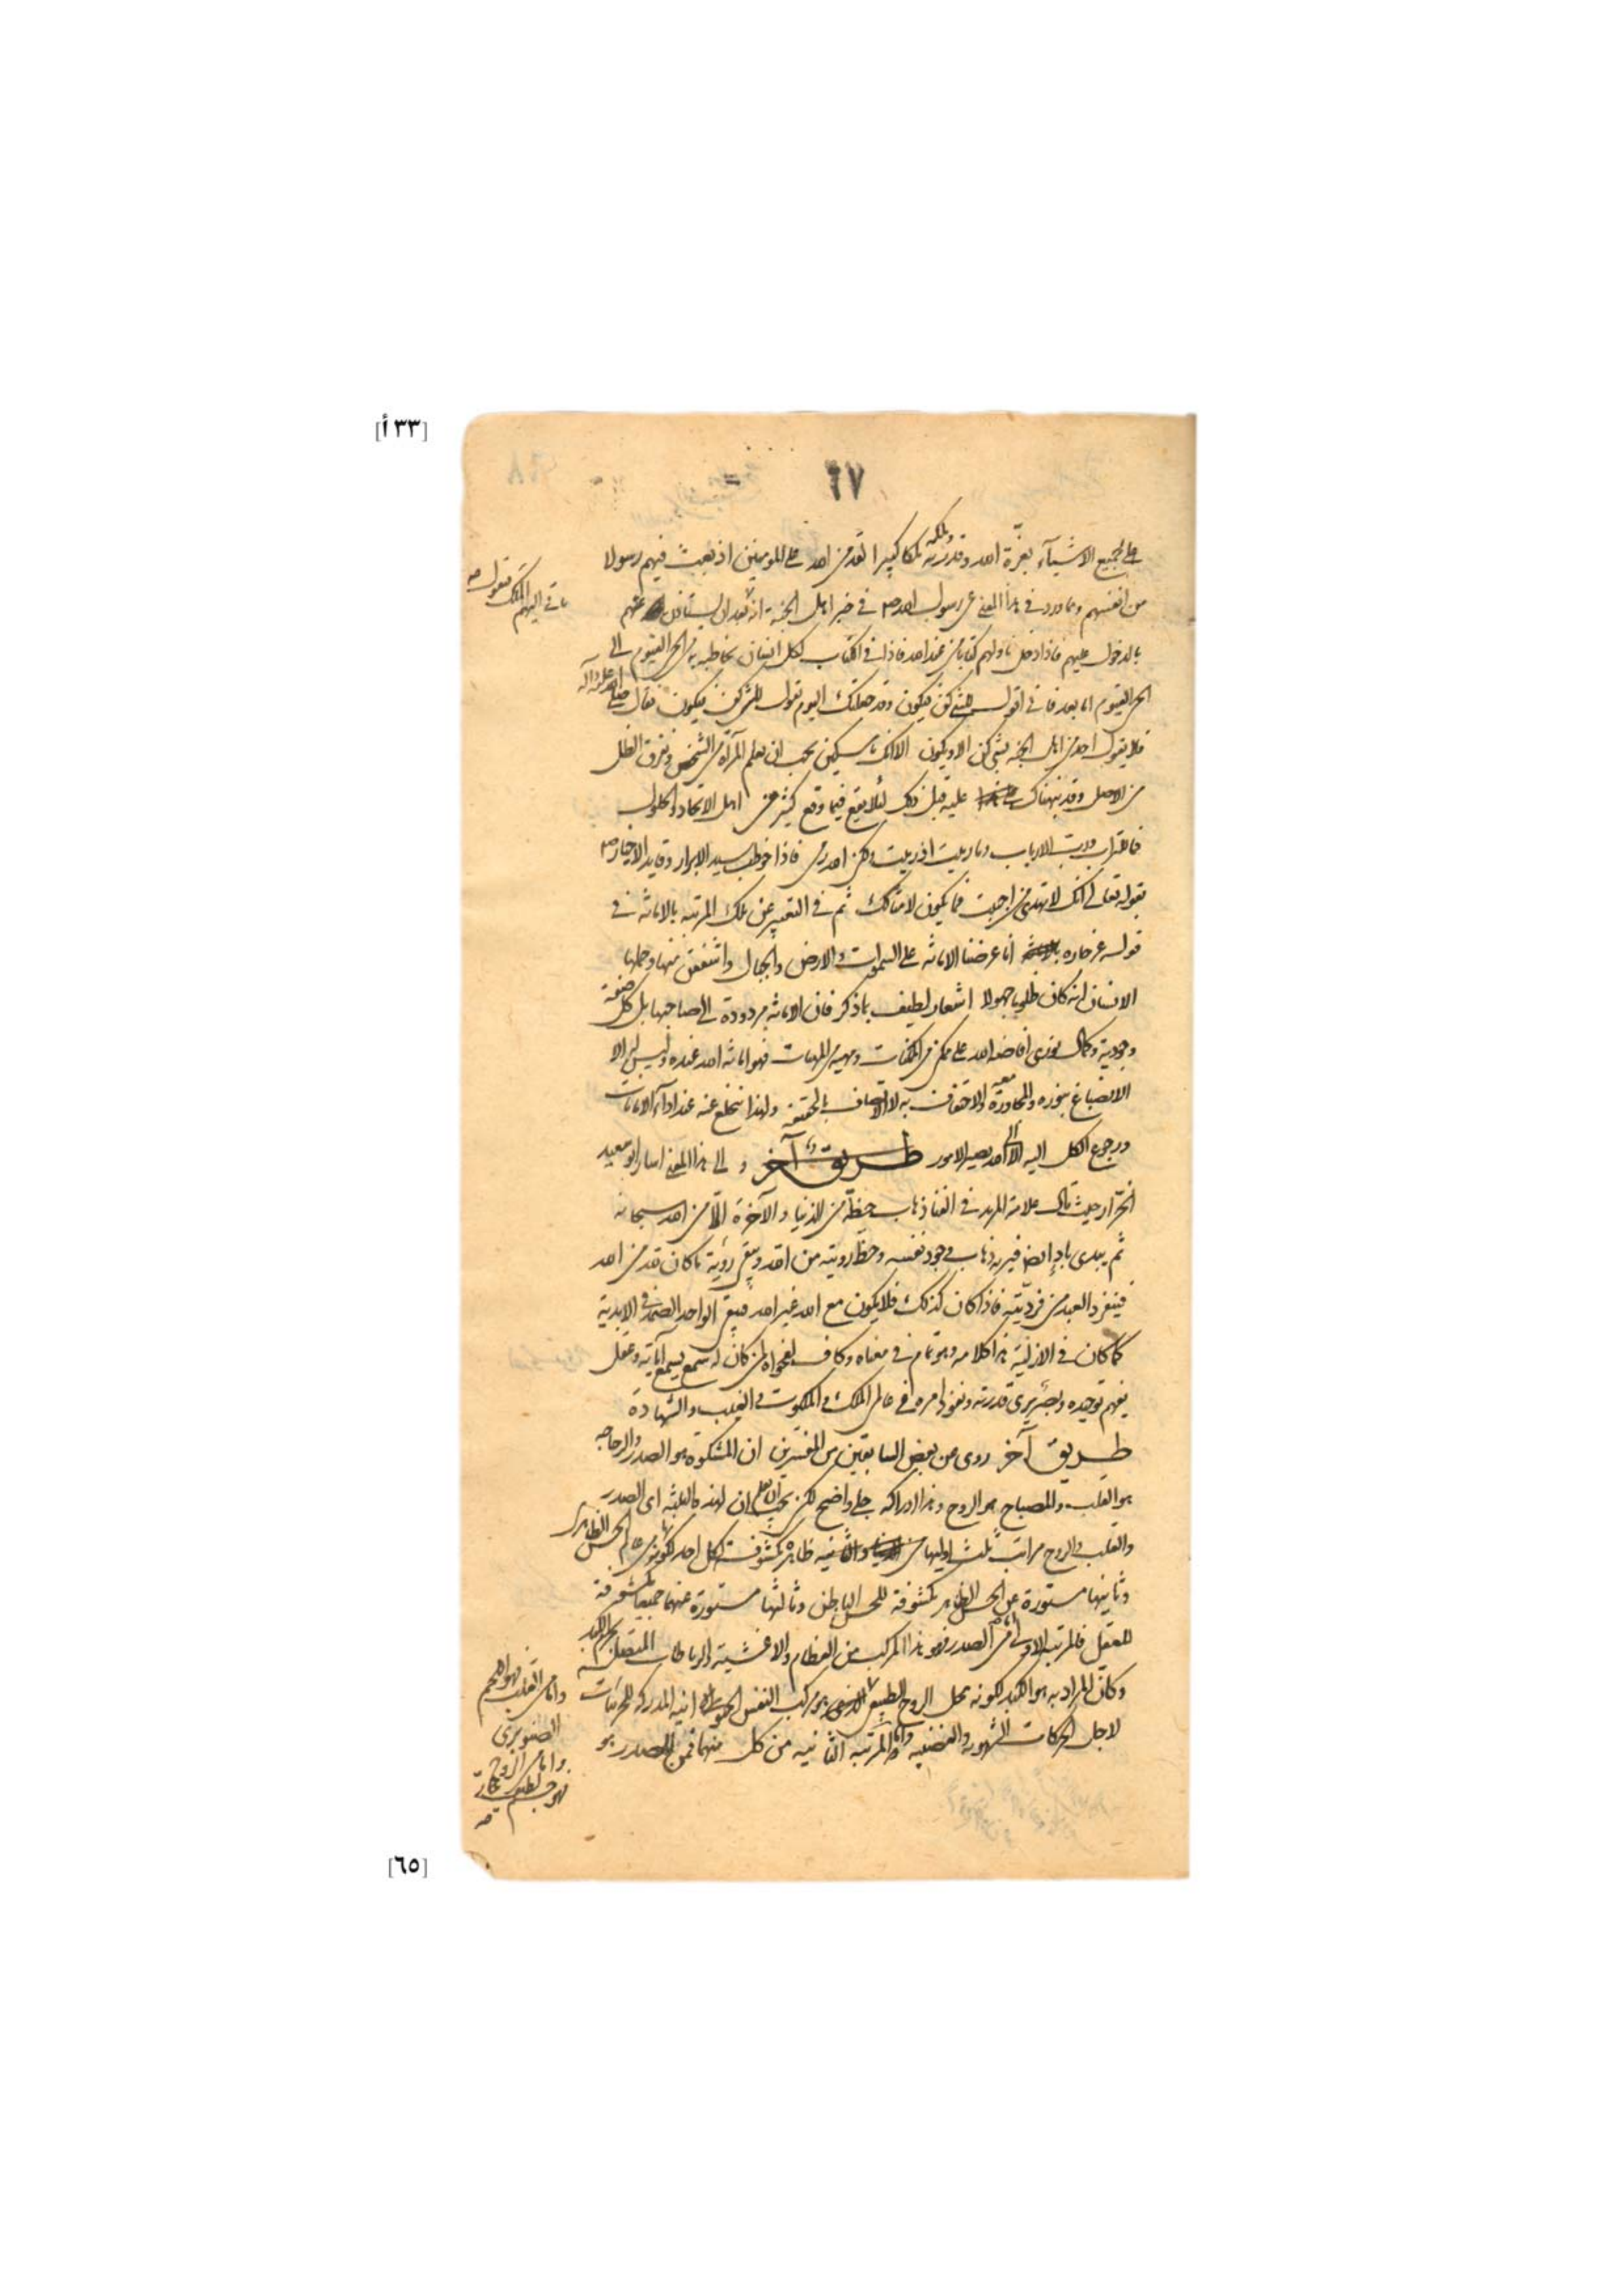 [٣٣ أ]
٦٧
على جميع الاشيآء بعزّة الله وقدرته وملكه ملكا كبيرا لقد من الله على المومنين اذ بعث فيهم رسولا
من انفسهم ومما ورد في هذا المعنى عن رسول الله ص في خبر اهل الجنة انه بعد ان يستاذن عنهم
ياتي اليهم الملك فيقول صه
بالدخول عليهم فاذا دخل ناولهم كتابا من عند الله فاذا في الكتاب لكل انسان يخاطبه به من الحي القيوم الى
الحي القيوم اما بعد فاني اقول للشيء كن فيكون وقد جعلتك اليوم تقول للشيء كن فيكون فقال صلى الله عليه وآله
فلا يقول احد من اهل الجنة لشيء كن الا ويكون الا انك يا مسكين يجب ان تعلم المرآة من الشخص وتفرق الظل
من الاصل وقد نبهناك عليه قبل ذلك لئلا تقع فيما وقع كثير من اهل الاتحاد والحلول
فما للتراب ورب الارباب وما رميت اذ رميت ولكن الله رمى فاذا خوطب سيد الابرار وقايد الاخيار ص
بقوله تعالى انك لا تهدى من احببت فما يكون لامثالك ثم في التعبير عن تلك المرتبة بالامانة في
قوله عز جاره انا عرضنا الامانة على السموات والارض والجبال واشفقن منها وحملها
الانسان انه كان ظلوما جهولا اشعار لطيف بما ذكر فان الامانة مردودة الى صاحبها بل كل صفة
وجودية وكمال نورى افاضه الله على ممكن من الممكنات ومهية من المهيات فهو امانة الله عنده وليس له الا
الانصباغ بنوره والمجاورة معه والاحتفاف به لا الاتصاف بالحقيقة ولهذا ينخلع عنه عند اداء الامانات
ورجوع الكل اليه الا الى الله يصير الامور طريق آخر والى هذا المعنى اشار ابو سعيد
الخرّاز حيث قال علامة المريد في الفنا ذهاب حظّه من الدنيا والآخرة الّا من الله سبحانه
ثم يبدى باد ايضا فيريه ذهاب وجود نفسه وحظّ رويته من الله ويبقى رؤية ما كان قد من الله
فيتفرد العبد من فرديّته فاذا كان كذلك فلا يكون مع الله غير الله فيبقى الواحد الصمد في الابدية
كما كان في الازلية هذا كلامه وهو تمام في معناه وكاف لفحواه لمن كان له سمع يسمع آياته وعقل
يفهم توحيده وبصر يرى قدرته ونفوذ امره في عالم الملك والملكوت والغيب والشهادة
طريق آخر روى عن بعض السابقين من المفسرين ان المشكوة هو الصدر والزجاجه
هو القلب والمصباح هو الروح وهذا ادراكه جلي واضح لكن يجب ان يعلم ان لهذه الثلثة اى الصدر
والقلب والروح مراتب ثلث اوليها ظاهرة مكشوفة لكل احد لكونها من عالم الحس الظاهر
وثانيها مستورة عن الحس الظاهر مكشوفة للحس الباطن وثالثها مستورة عنهما جميعا مكشوفة
للعقل فالمرتبة الاولى اما من الصدر فهو هذا المركب من العظام والاغشية والرباطات
واما من القلب فهو اللحم
الصنوبرى
واما من الروح
فهو جسم لطيف بخارى صه
وكان المراد به هو الكبد لكونه محل الروح الطبيعي مركب النفس الحيوانية المدركة للجزئيات
لاجل الحركات الشهوية والغضبية واما المرتبة الثانية من كل منهما فمن الصدر هو
[٦٥]